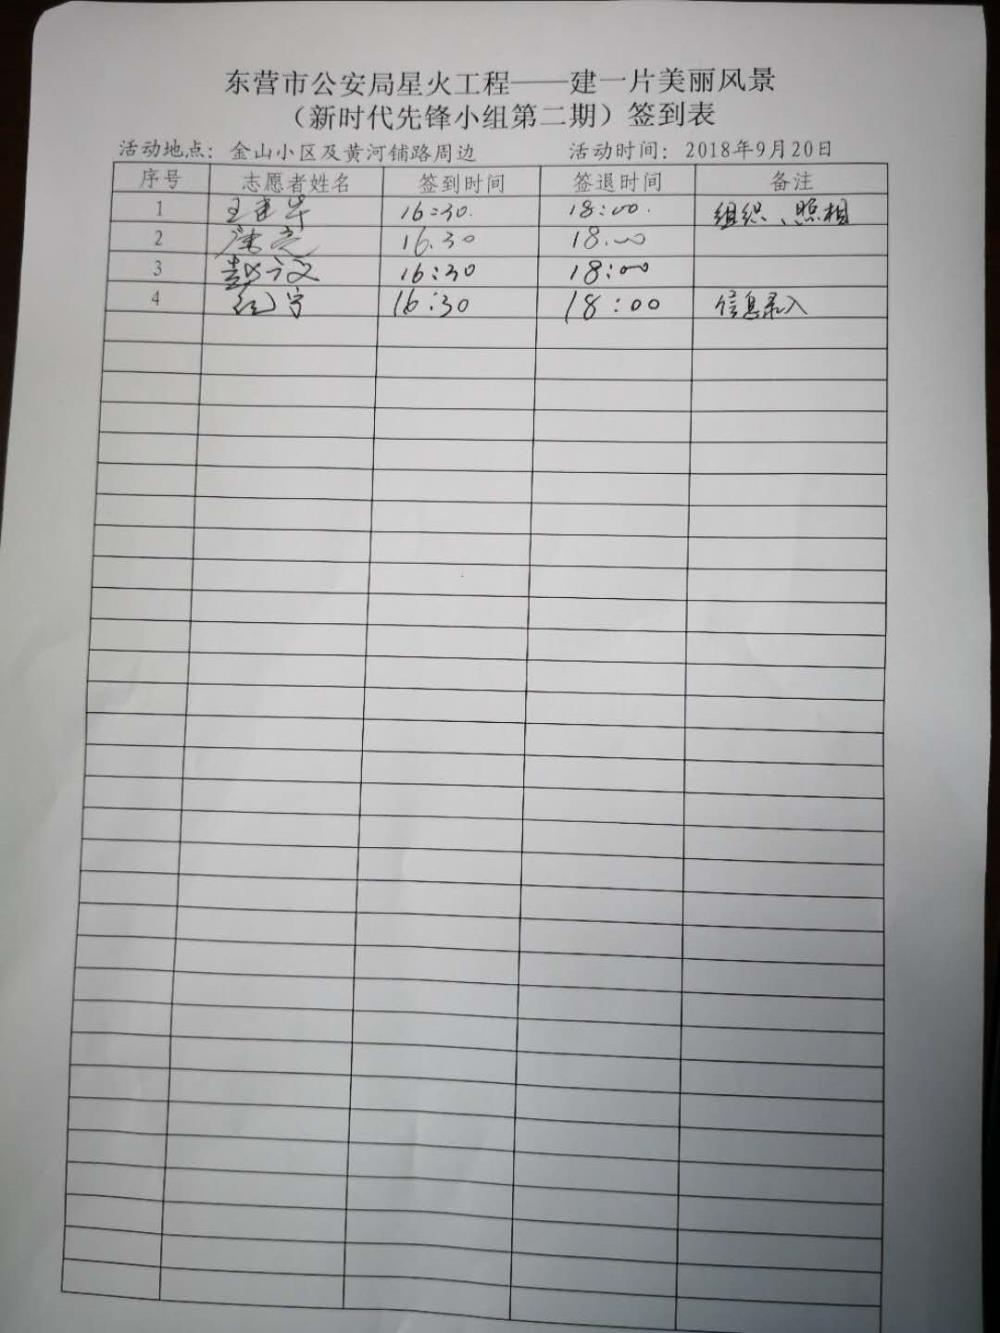 东营市公安局星火工程——建一片美丽风景
（新时代先锋小组第二期）签到表
活动地点：金山小区及黄河铺路周边 活动时间：2018年9月20日
序号 志愿者姓名 签到时间 签退时间 备注
1 16:30. 18:00. 组织、照相
2 16.30 18.00
3 16:30 18:00
4 16:30 18:00 信息录入